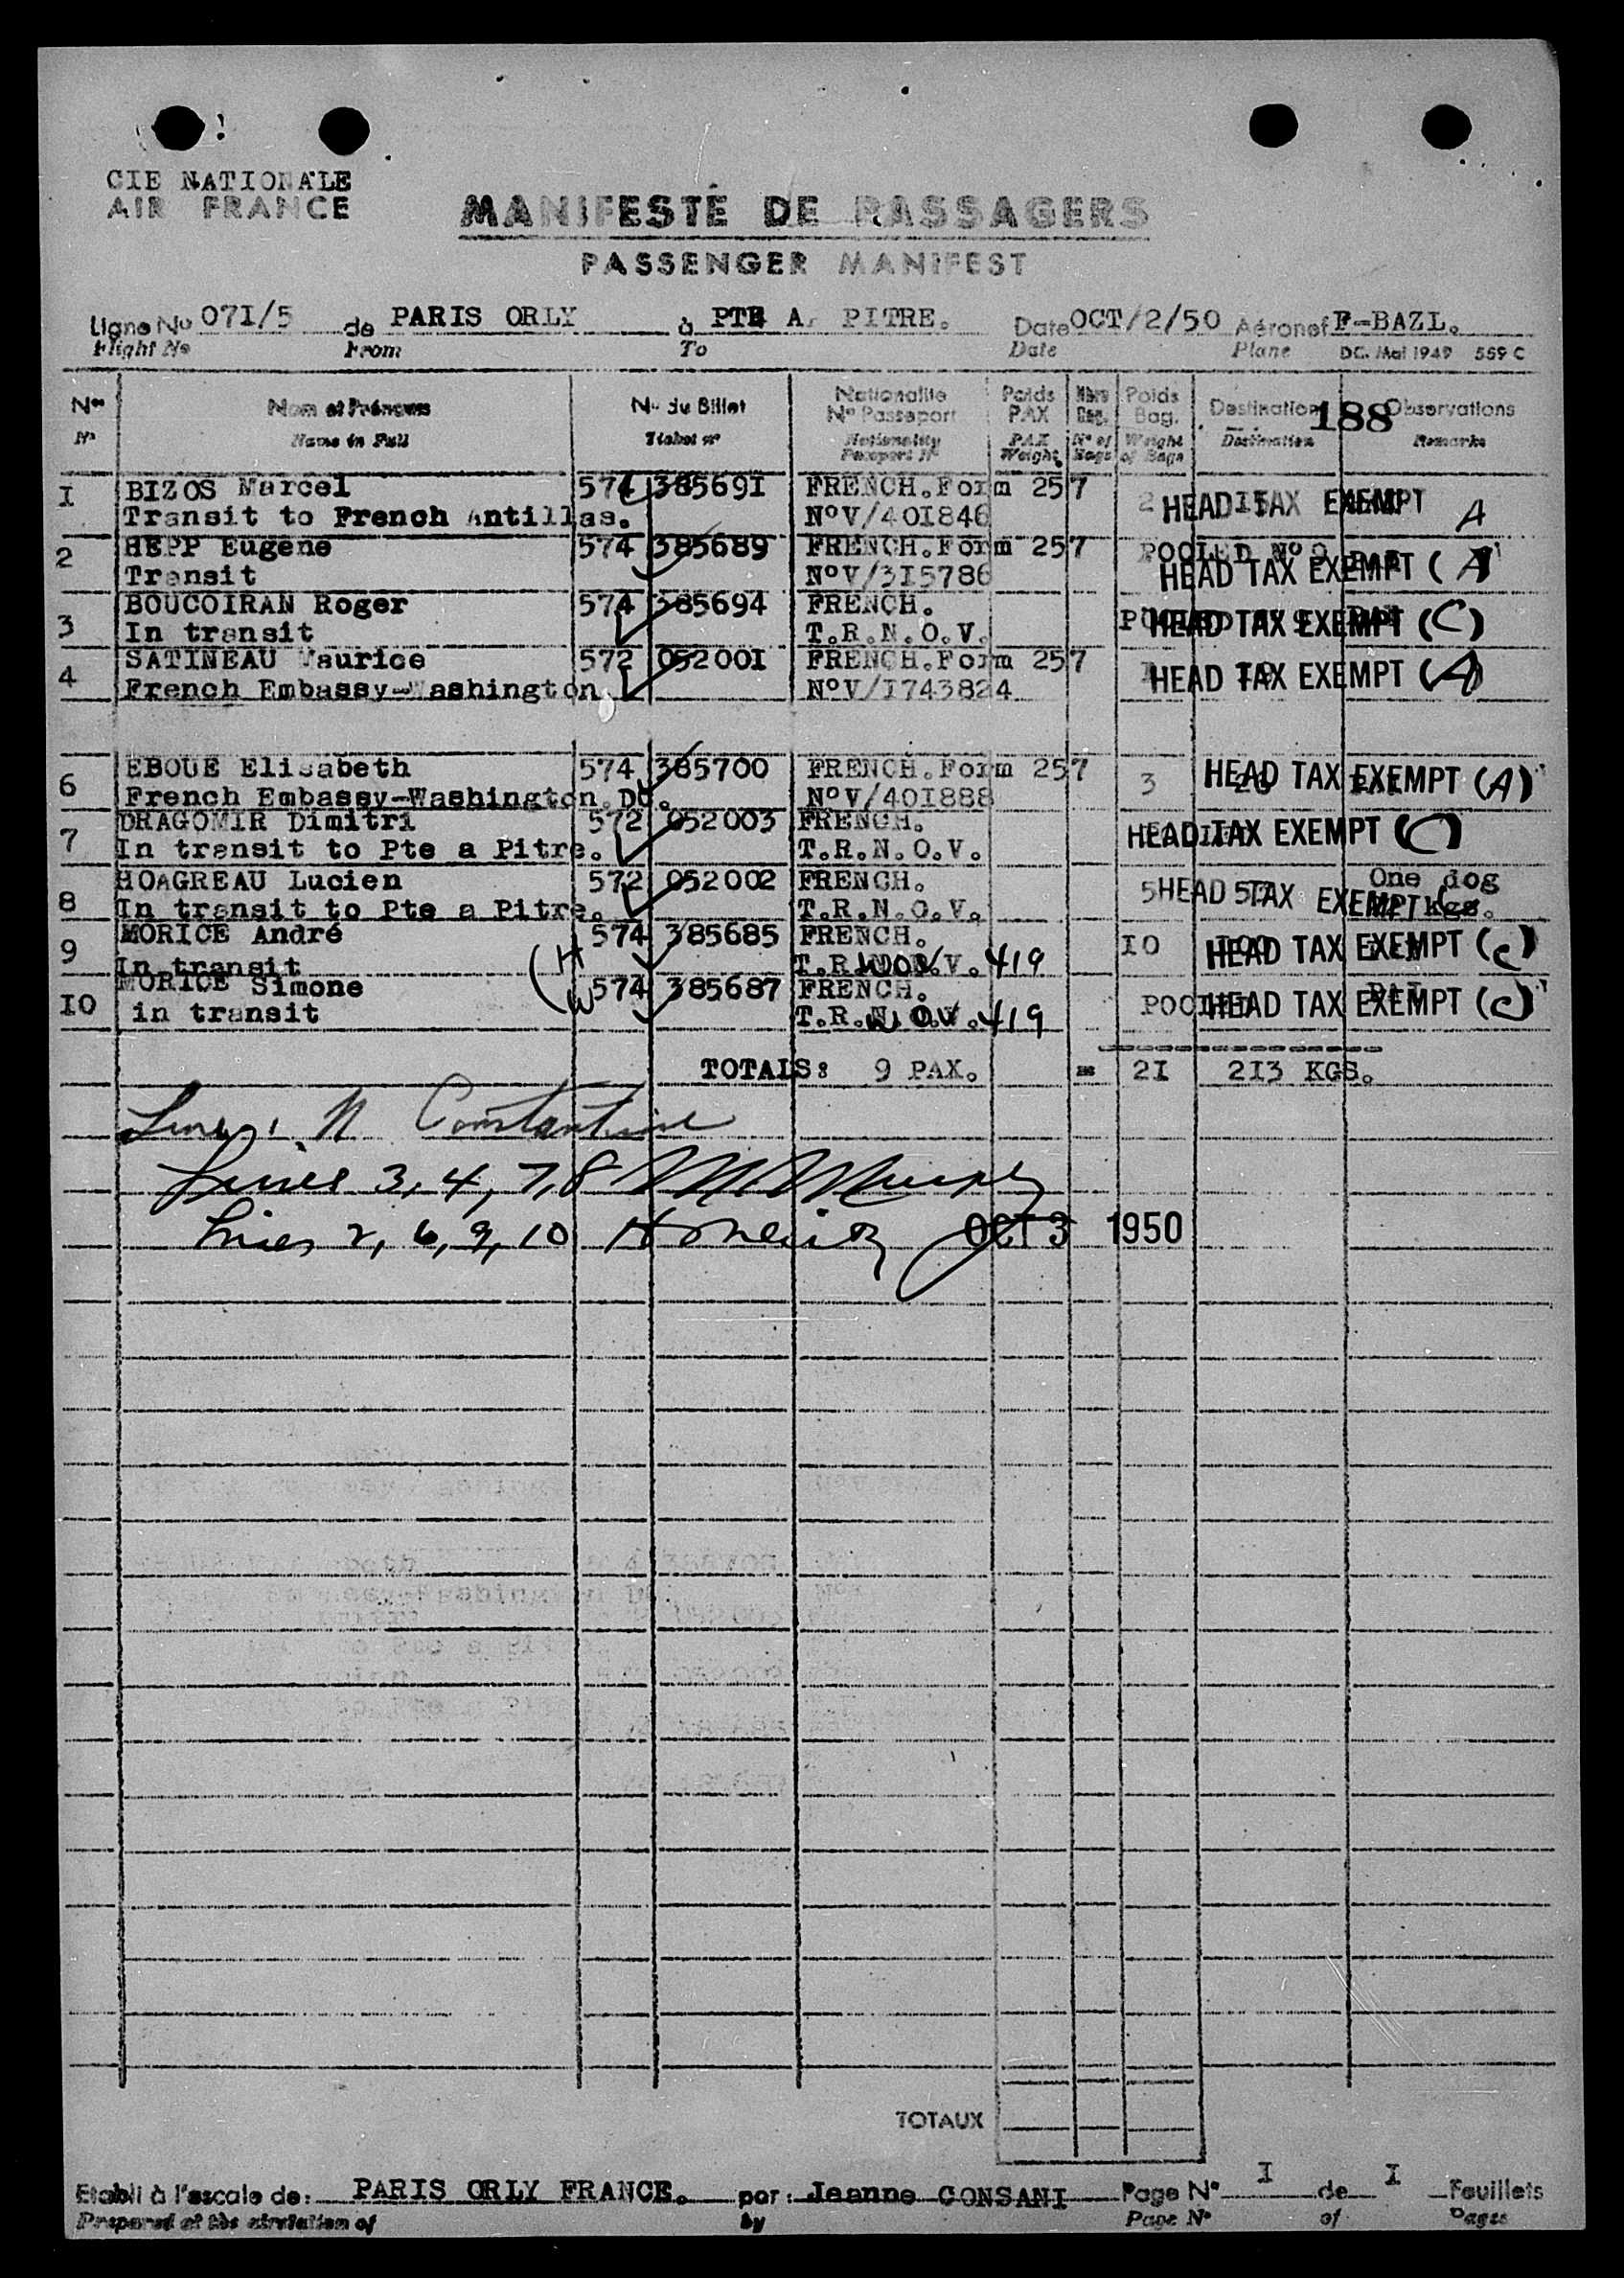 CIE NATIONALE
AIR FRANCE
MANIFESTE DE PASSAGERS
PASSENGER MANIFEST
Ligne No 07I/5 de PARIS ORLY à PTE A. PITRE. Date OCT/2/50 Aéronef F-BAZL.
Flight No From To Date Plane DC. Mai 1949 559 C
Nos Nom et Prénoms No du Billet Nationalité No Passeport Poids PAX Nbre Bag. Poids Bag. Destination 188 Observations
No Name in Full Ticket no Nationality Passport No PAX Weight No of Bags Weight of Bags Destination Remarks
I BIZOS Marcel 574 38569I FRENCH.Form 257 2 HEAD TAX EXEMPT A
Transit to French Antillas. NoV/40I846
2 HEPP Eugene 574 385689 FRENCH.Form 257 POOLED No 9
Transit NoV/3I5786 HEAD TAX EXEMPT (A)
3 BOUCOIRAN Roger 574 385694 FRENCH. HEAD TAX EXEMPT (C)
In transit T.R.N.O.V.
4 SATINEAU Maurice 572 05200I FRENCH.Form 257 HEAD TAX EXEMPT (A)
French Embassy-Washington NoV/I743824
6 EBOUE Elisabeth 574 385700 FRENCH.Form 257 3 HEAD TAX EXEMPT (A)
French Embassy-Washington.DC. NoV/40I888
7 DRAGOMIR Dimitri 572 052003 FRENCH. HEAD TAX EXEMPT (C)
In transit to Pte a Pitre. T.R.N.O.V.
8 HOAGREAU Lucien 572 052002 FRENCH. 5 HEAD TAX EXEMPT One dog
In transit to Pte a Pitre. T.R.N.O.V. kgs.
9 MORICE André (H 574 385685 FRENCH. I0 HEAD TAX EXEMPT (C)
In transit T.R.N.O.V. 419
I0 MORICE Simone (W 574 385687 FRENCH. HEAD TAX EXEMPT (C)
in transit T.R.N.O.V. 419
TOTALS: 9 PAX. 2I 2I3 KGS.
Line 1. N Constantine
Lines 3, 4, 7, 8 M Murphy
Lines 2, 6, 9, 10 OCT 3 1950
TOTAUX
Etabli à l'escale de: PARIS ORLY FRANCE. par: Jeanne CONSANI Page No I de I Feuillets
Prepared at the by Page No of Pages